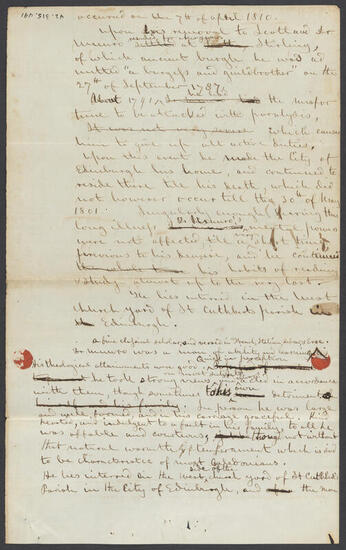 occurred on the 7th of April 1810.
Upon his removal to Scotland Dr
Munro settled at Stirling,
of which ancient burgh he was ad
mitted "a burgess and guildbrother on the
27th of September 1787.
About 1791, the misfor
tune to be attacked with paralysis,
It was not very severe which caused
him to give up all active duties.
Upon this event he made the City of
Edinburgh his home, and continued to
reside there till his death, which did
not however occur till the 30th of May
1801. Singularly enough during this
long illness, Dr Munro's mental powers
were not affected till a short time
previous to his decease, and he continued
his habits of reading
& study almost up to the very last.
He lies interred in the West
church yard of St Cuthbert's parish in
Edinburgh.
a fine classical scholar, and
Dr Munro was a man of ability
Quick in perception
His theological attainments were good
he took strong views acted in accordance
with them, though sometimes to his own detriment
In person he was large
and well formed and in his carriage graceful. Kind
hearted, and indulgent to a fault in his family, to all he
was affable and courteous, though not without
that natural warmth of temperament which is said
to be characteristic of most Caledonians.
He lies interred in the West side of the church yard of St Cuthbert's
Parish in the City of Edinburgh, and the